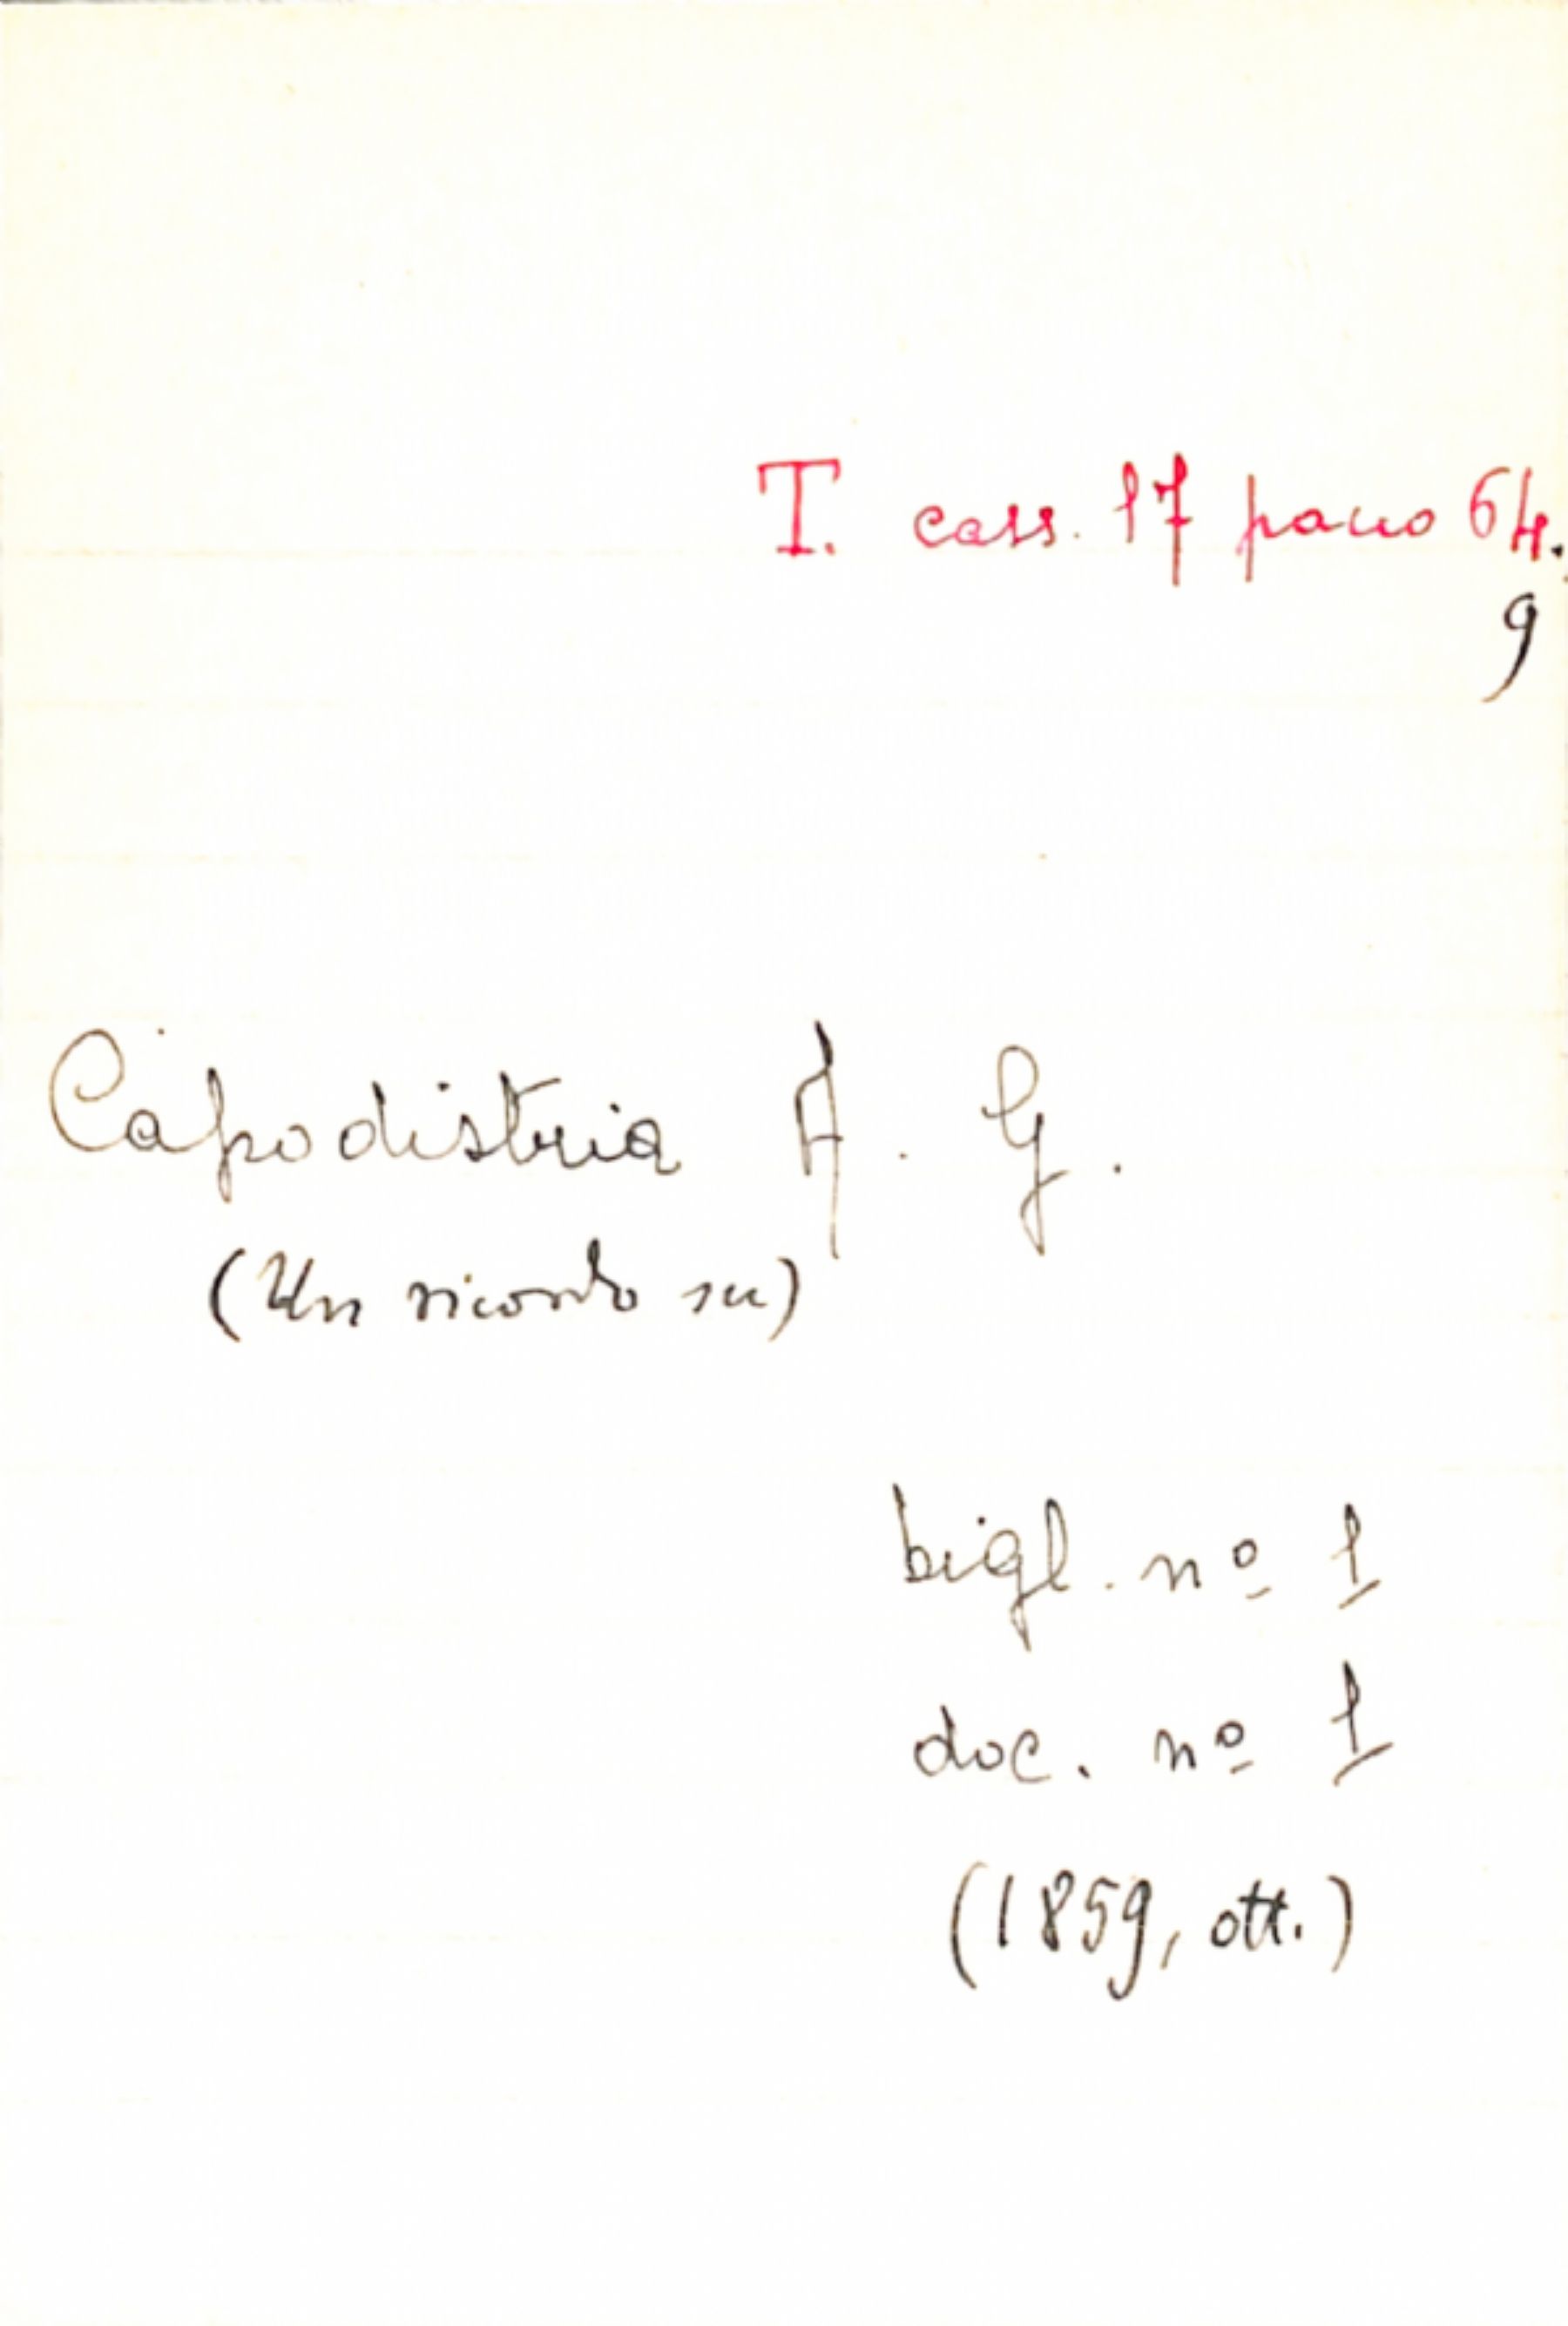 T. cass. 17 pacco 64.
9
Capodistria A. G.
(Un ricordo su)
bigl. nº 1
doc. nº 1
(1859, ott.)